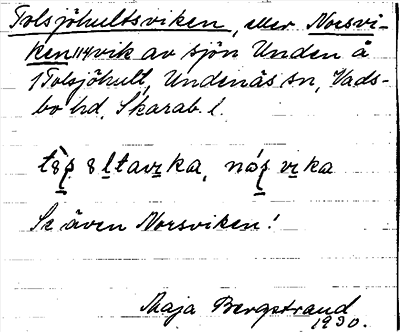 Tolsjöhultsviken, eller Norsvi-
ken 114 vik av sjön Unden å
1 Tolsjöhult, Undenäs sn, Vads-
bo hd, Skarab. l.
Se även Norsviken!
Maja Bergstrand
1930.